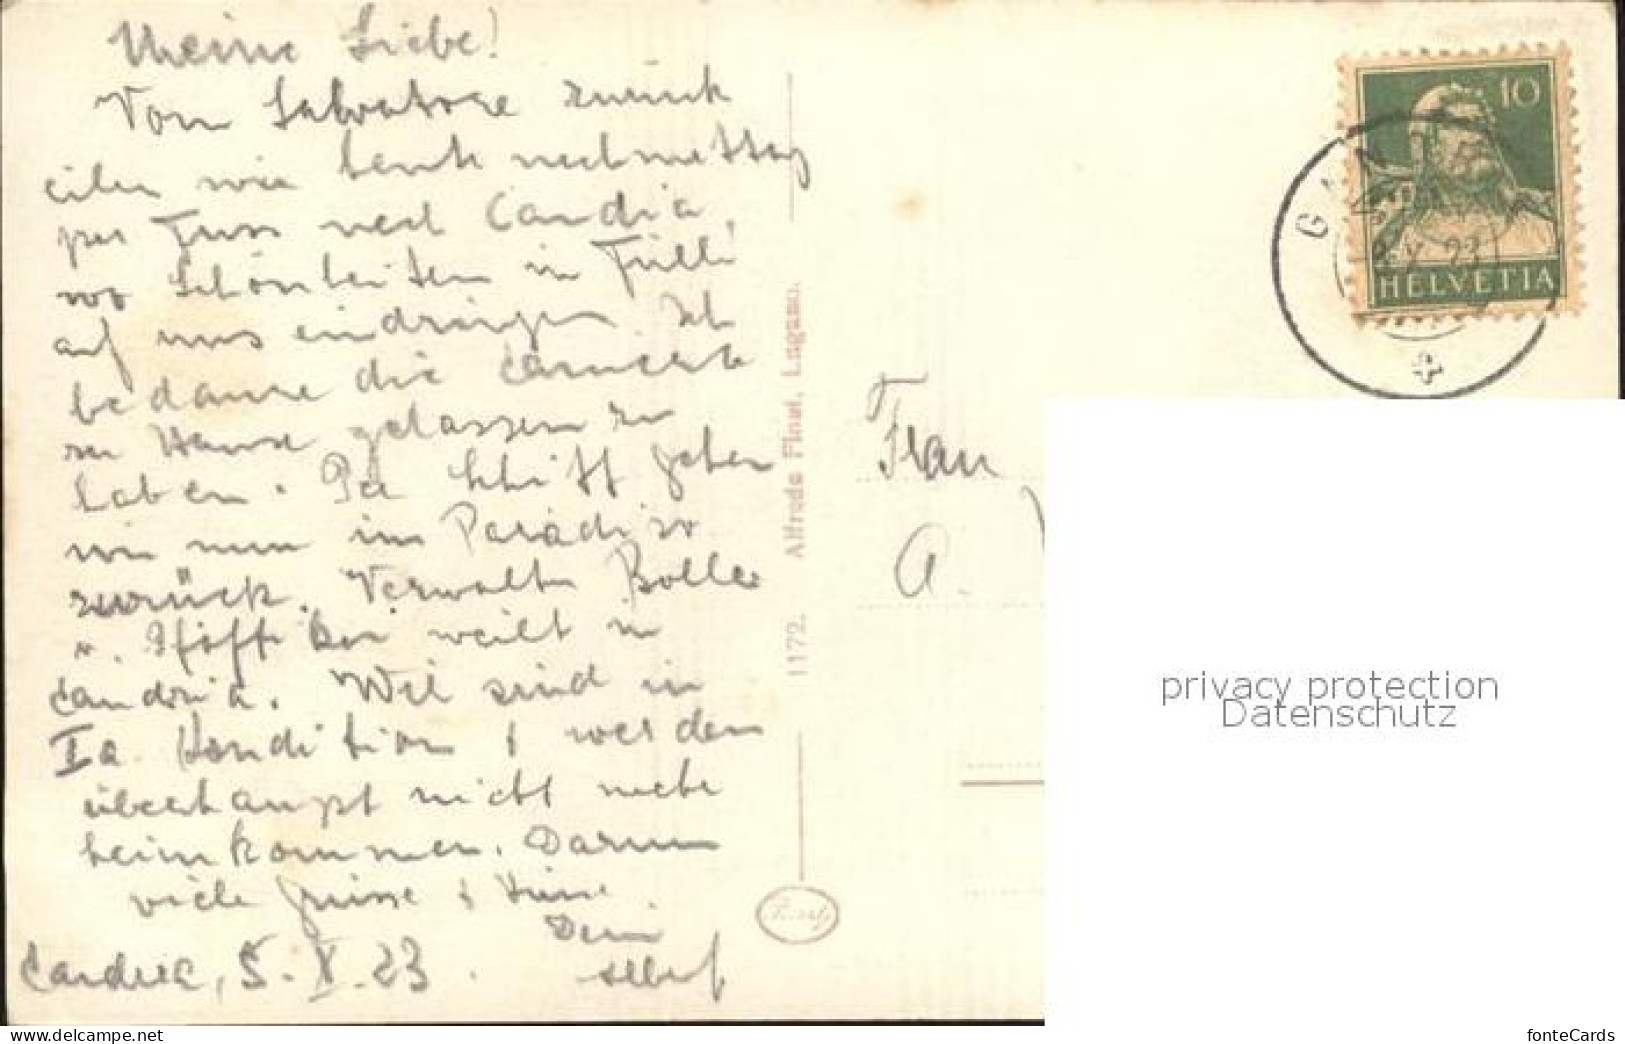 Meine Liebe!
Von Salvatore zurück
eilen wir heute nachmittag
per Fuss nach Candria,
wo Schönheiten in Fülle
auf uns eindringen. Ich
bedaure die Camera
zu Hause gelassen zu
haben. Per Schiff gehen
wir nun im Paradiso
zurück. Verwalter Boller
v. Pfäffikon weilt in
Candria. Wir sind in
Ia Kondition & werden
überhaupt nicht mehr
heimkommen. Darum
viele Grüsse & Küsse
Dein
Albert
Candria, 5.X.23.
1172. Alfredo Finzi, Lugano.
10
HELVETIA
X. 23
Frau
A.
privacy protection
Datenschutz
fonteCards